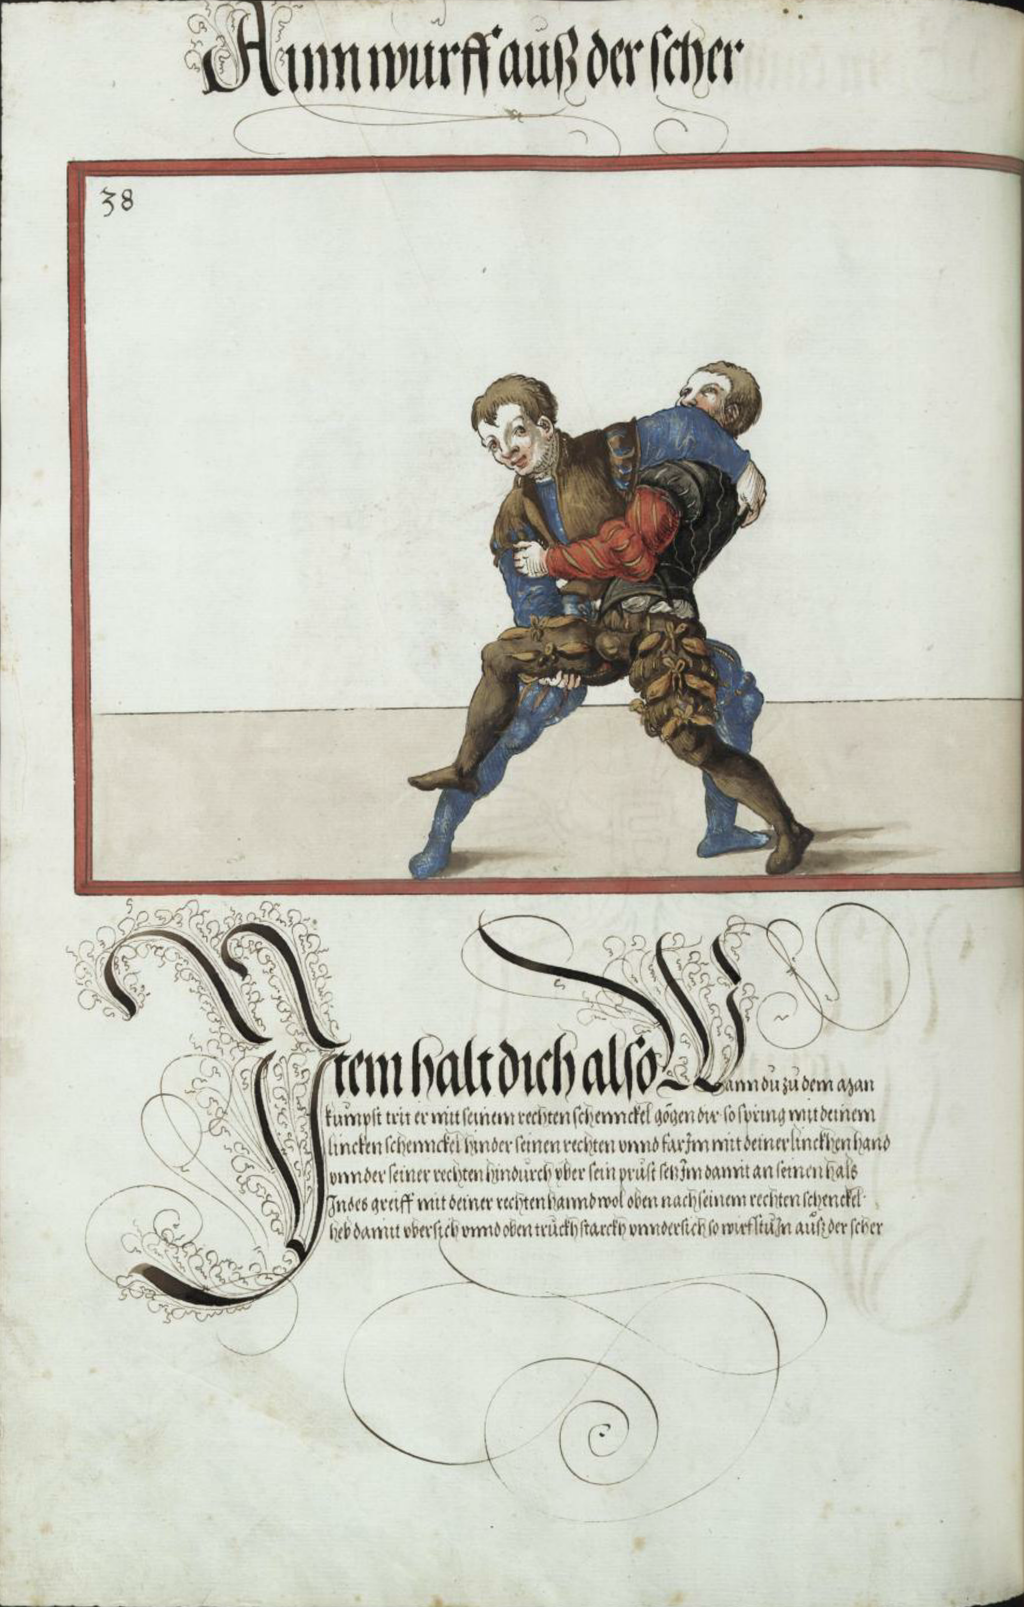 Ainn wurff auß der scher
38
Item halt dich also Wann du zu dem Man
kumpst trit er mit seinem rechten schennckel gögen dir so spring mit deinem
lincken schennckel hinder seinen rechten vnnd far Im mit deiner linckhen hand
vnnder seiner rechten hindurch vber sein prust setz Im damit an seinen hals
Indes greiff mit deiner rechten hannd wol oben nach seinem rechten schenckel
heb damit vbersich vnnd oben truckh starckh vnndersich so wirfstu In auß der scher